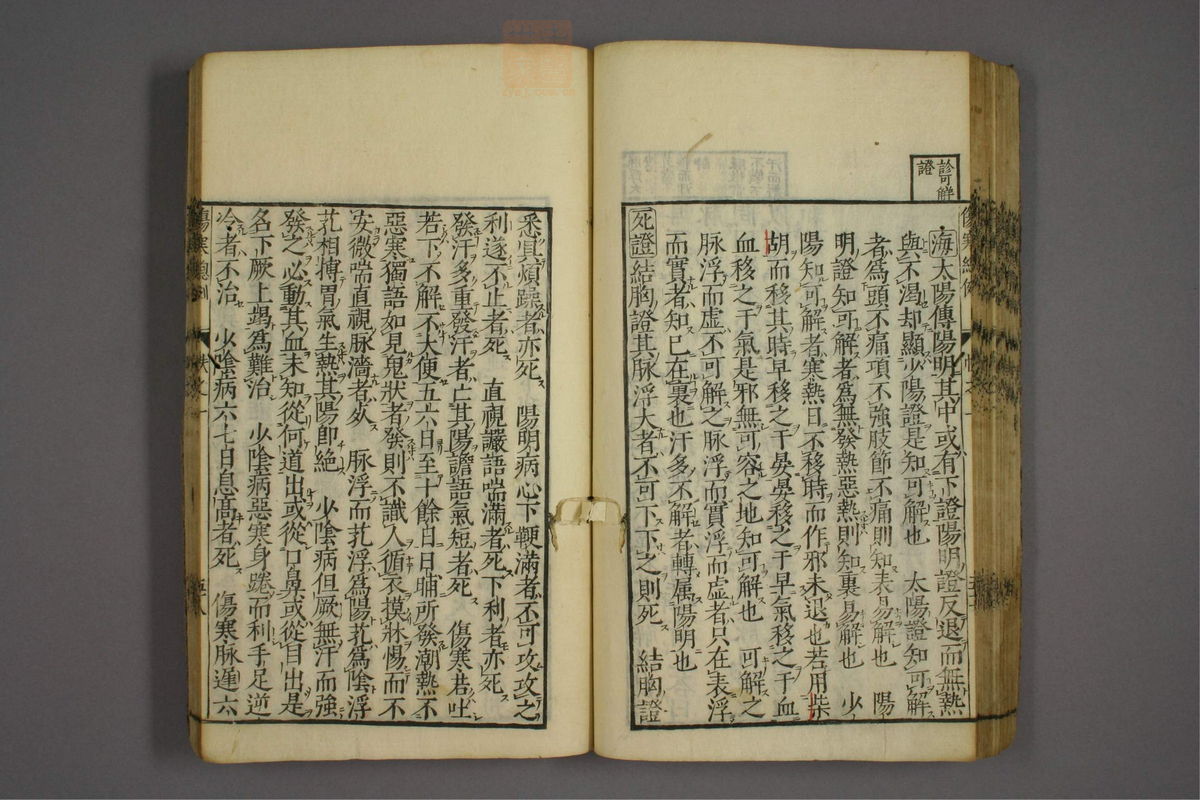 診可解
證
海太陽傳陽明其中或有下證陽明證反退而無熱
與不渴却顯少陽證是知可解也　太陽證知可解
者爲頭不痛項不強肢節不痛則知表易解也　陽
明證知可解者爲無發熱惡熱則知裏易解也　少
陽知可解者寒熱日不移時而作邪未退也若用柴
胡而移其時早移之于晏晏移之于早氣移之于血
血移之于氣是邪無可容之地知可解也　可解之
脉浮而虚不可解之脉浮而實浮而虚者只在表浮
而實者知已在裏也汗多不解者轉属陽明也
死證結胸證其脉浮大者不可下下之則死　結胸證
悉具煩躁者亦死　陽明病心下鞕滿者不可攻攻之
利遂不止者死　直視讝語喘滿者死下利者亦死
發汗多重發汗者亡其陽讝語氣短者死　傷寒若吐
若下不解不大便五六日至十餘日日晡所發潮熱不
惡寒獨語如見鬼狀者發則不識人循衣摸牀惕而不
安微喘直視脉濇者死　脉浮而芤浮爲陽芤爲陰浮
芤相搏胃氣生熱其陽即絶　少陰病但厥無汗而強
發之必動其血未知從何道出或從口鼻或從目出是
名下厥上竭爲難治　少陰病惡寒身踡而利手足逆
冷者不治　少陰病六七日息高者死　傷寒脉遲六